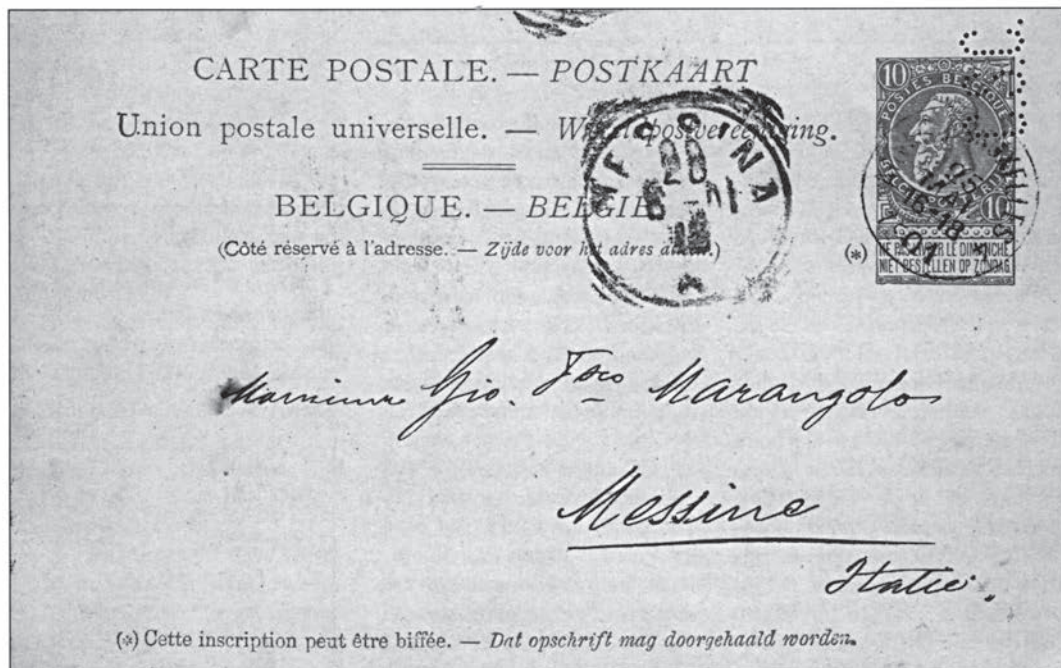 CARTE POSTALE. — POSTKAART
Union postale universelle. — Wereldpostvereeniging.
BELGIQUE. — BELGIE
(Côté réservé à l'adresse. — Zijde voor het adres alleen.)
10 10
POSTES BELGIQUE
BELGIE
10
(*) NE PAS LIVRER LE DIMANCHE
NIET BESTELLEN OP ZONDAG
MESSINA
Monsieur Gio. Marangolo
Messine
Italie.
(*) Cette inscription peut être biffée. — Dat opschrift mag doorgehaald worden.